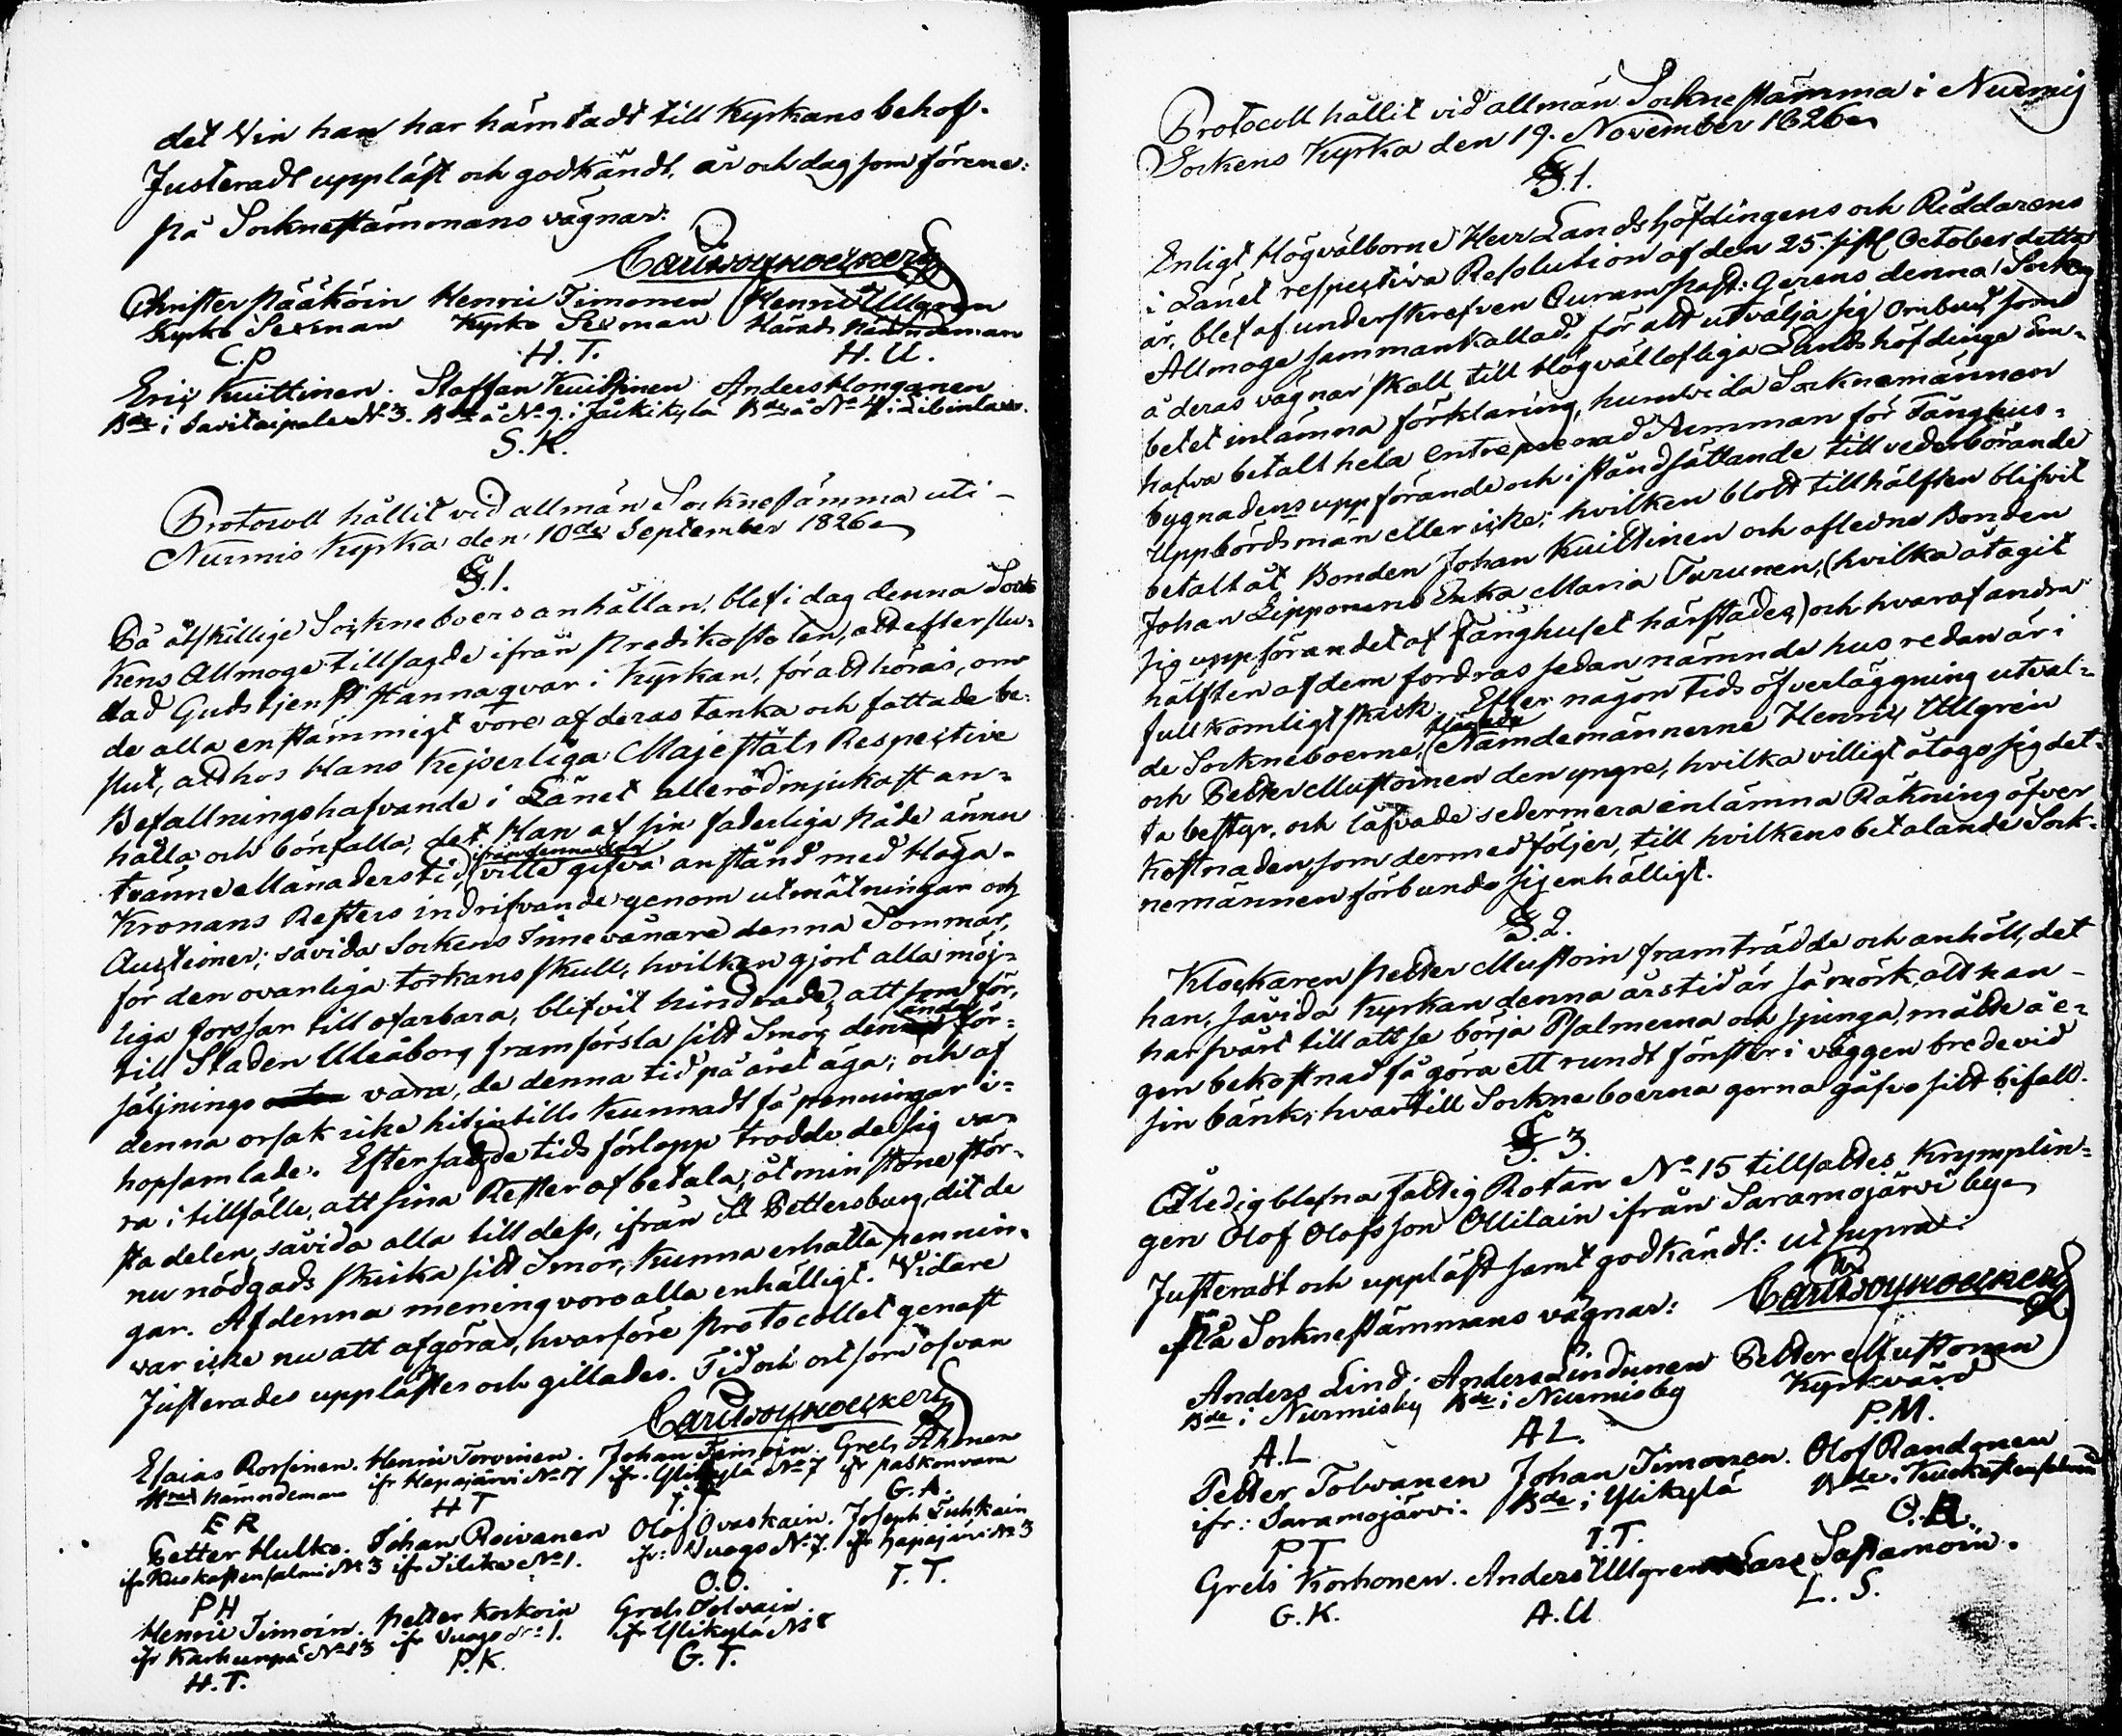 det Vin han har hämtadt till Kyrkans behof.
Justeradt uppläst och godkändt, år och dag som förene:
på Sockneståmmans vägnar:
Christer Pääköin Henric Timonen Henric Ullgren
Kyrko Sexman Kyrko Sexman Härads Nämndeman
C.P H.T. H.U.
Eric Kuittinen. Staffan Kuittinen Anders Honganen
Bde i Savitaipale N:3. Bde å No 9. i Jåkikylä Bde å No 4 i
S.K.
Protocoll hållit vid allmän Socknestämma uti
Nurmis Kyrka den 10de September 1826
§.1.
På åtskillige Sockneboers anhållan, blef i dag denna Sock
kens Allmoge tillsagde ifrån Predikostolen, att efter slu-
tad Gudstjenst stanna qvar i Kyrkan, för att höras, om
de alla enstämmigt vore af deras tanka och fattade be-
slut, att hos Hans Kejserliga Majestäts Respective
Befallningshafvande i Länet allerödmjukast an-
hålla och bönfalla, det Han af sin faderliga Nåde ännu
tvänne Månaders tid, ifrån denna dag ville gifva anstånd med Höga
Kronans Resters indrifvande genom utmätningar och
Auctioner; såvida Sockens Innevånare denna Sommar,
för den ovanliga torkans skull, hvilken gjort alla möj-
liga forssar till ofarbara, blifvit hindrade, att som för,
till Staden Uleåborg framforsla sitt Smör, den enda för-
säljnings vara, de denna tid på året äga; och af
denna orsak icke hitintills kunnadt få penningar i-
hopsamlade. Efter sagde tids förlopp trodde de sig va-
ra i tillfälle, att sina Rester afbetala, åtminstone stör-
sta delen, såvida alla till dess, ifrån St Pettersburg, dit de
nu nödgads skicka sitt Smör, kunna erhålla pennin-
gar. Af denna mening voro alla enhälligt. Vidare
var icke nu att afgöra, hvarföre Protocollet genast
Justerades upplästes och gillades. Tid och ort som ofvan
Esaias Rorsinen. Henric Torvinen. Johan Timoin. Grels Ahonen
Nämndeman ifr Hapajärvi No 17 ifr. Ylikylä No 7 ifr Paskonvara
E R H T I. T G. A.
Petter Hulko. Johan Roivanen Olof Ovaskain. Joseph Tuhkain
ifr Kuokastensalmi No 3 ifr Tilika No 1. ifr: Vuago No 7. ifr Hapajärvi No 3
P H O.O. T. T.
Henric Timoin. Petter Korkoin Grels Tolvain.
ifr Karhunpä No 13 ifr Vuago No 1. ifr Ylikylä No 8
H. T. P. K. G. T.
Protocoll hållit vid allmän Socknestämma i Nurmis
Sockens Kyrka den 19. November 1826
§.1.
Enligt Högvälborne Herr Landshöfdingens och Riddarens
i Länet respective Resolution af den 25. sistl October detta
år, blef af underskrefven Curam past: Gerens denna Sockens
Allmoge sammankallad, för att utvälja sig Ombud, som
å deras vägnar skall till Höglofliga Landshöfdinge Em-
betet inlämna förklaring, huruvida Socknemännen
hafva betalt hela entreprenad Summan för Fånghus-
bygnadens uppförande och iståndsättande till vederbörande
Uppbördsman eller icke; hvilken blott till hälften blifvit
betalt åt Bonden Johan Kuittinen och afledne Bonden
Johan Lipponens Enka Maria Turunen, (hvilka åtagit
sig uppförandet af Fånghuset härstädes) och hvaraf andra
hälften af dem fordras sedan nämnde hus redan är i
fullkomligt skick. Efter någon tids öfverläggning utval-
de Sockneboerne, Nämdemännerne Henric Ullgrén
och Petter Mustoinen den yngre, hvilka villigt åtogo sig det-
ta bestyr, och låfvade sedermera inlämna Räkning öfver
kostnaden, som dermed följer, till hvilkens betalande Sock-
nemännen förbundo sig enhälligt.
§.2.
Klockaren Petter Mustoin framträdde och anhöll, det
han, såvida Kyrkan denna årstid är så mörk, att han
har svårt till att se börja Psalmerna och sjunga, måtte å e-
gen bekostnad få göra ett rundt fönster i väggen bredevid
sin bänk; hvartill Sockneboerna gerna gåfvo sitt bifall.
§. 3.
Å ledig blefna fattig Rotan No 15 tillsattes Krymplin-
gen Olof Olofsson Ollilain ifrån Saramojärvi by
Justeradt och uppläst samt godkändt: ut supra:
På Socknestämmans vägnar:
Anders Lind. Anders Lindunen Petter Mustonen
Bde i Nurmisby Bde i Nurmisby Kyrkvärd
A.L A L. P.M.
Petter Tolvanen Johan Timonen. Olof Randonen
ifr: Saramojärvi. Bde i Ylikylä Bde i Kuokastensalmi
P.T. I.T. O.R.
Grels Korhonen. Anders Ullgren Lars Sastamoin.
G.K. A.U L. S.